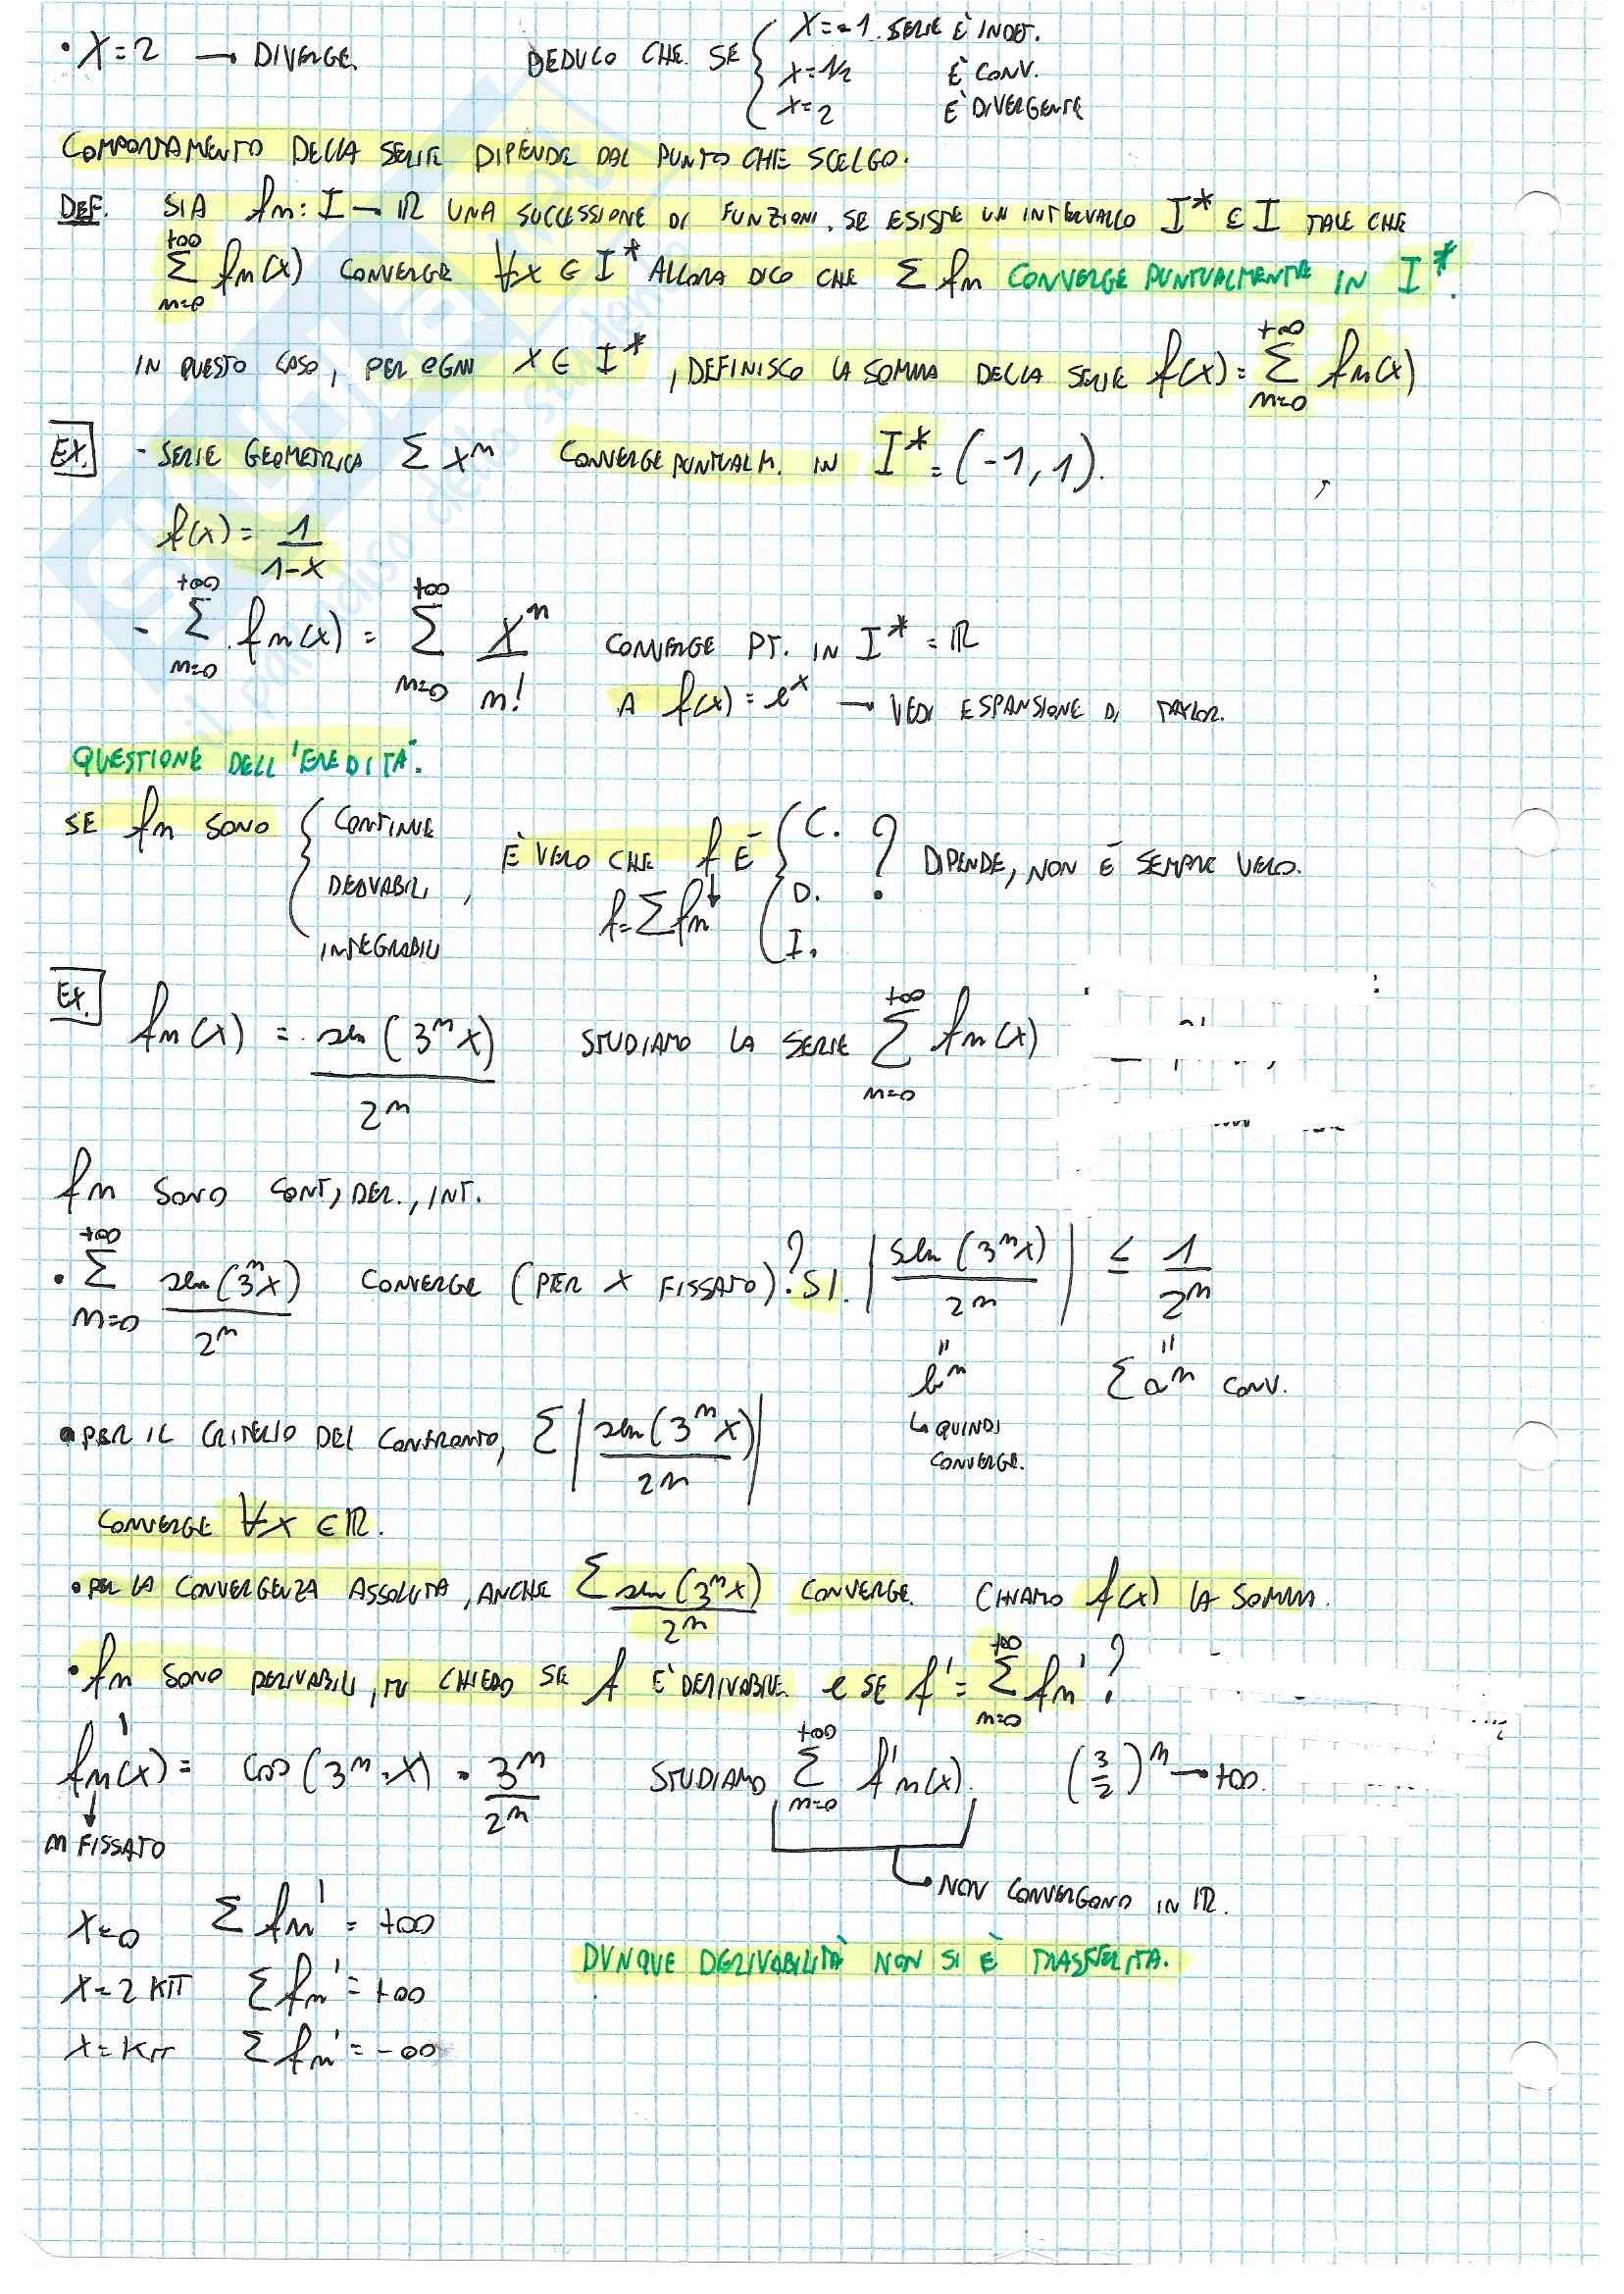 • X=2 → DIVERGE. DEDUCO CHE SE { X=-1 SERIE È INDET.
X=1/2 È CONV.
X=2 È DIVERGENTE
COMPORTAMENTO DELLA SERIE DIPENDE DAL PUNTO CHE SCELGO.
DEF. SIA fn: I → ℝ UNA SUCCESSIONE DI FUNZIONI. SE ESISTE UN INTERVALLO I* ∈ I TALE CHE
+∞ ∑ n=0 fn(x) CONVERGE ∀x ∈ I* ALLORA DICO CHE ∑ fn CONVERGE PUNTUALMENTE IN I*.
IN QUESTO CASO, PER OGNI X ∈ I*, DEFINISCO LA SOMMA DELLA SERIE f(x) = +∞ ∑ n=0 fn(x)
EX. - SERIE GEOMETRICA ∑ xⁿ CONVERGE PUNTUALM. IN I* = (-1, 1).
f(x) = 1/(1-x)
- +∞ ∑ n=0 fn(x) = +∞ ∑ n=0 xⁿ/n! CONVERGE PT. IN I* = ℝ
A f(x) = eˣ → VEDI ESPANSIONE DI TAYLOR.
QUESTIONE DELL'EREDITÀ.
SE fn SONO { CONTINUE
DERIVABILI,
INTEGRABILI
È VERO CHE f È { C.
D.
I.
? DIPENDE, NON È SEMPRE VERO.
f=∑fn
EX. fn(x) = sen(3ⁿx)/2ⁿ STUDIAMO LA SERIE +∞ ∑ n=0 fn(x)
fn SONO CONT, DER., INT.
• +∞ ∑ n=0 sen(3ⁿx)/2ⁿ CONVERGE (PER X FISSATO)? SI. |sen(3ⁿx)/2ⁿ| ≤ 1/2ⁿ
" bⁿ " ∑ aⁿ CONV.
↳ QUINDI
CONVERGE.
• PER IL CRITERIO DEL CONFRONTO, ∑ |sen(3ⁿx)/2ⁿ|
CONVERGE ∀x ∈ ℝ.
• PER LA CONVERGENZA ASSOLUTA, ANCHE ∑ sen(3ⁿx)/2ⁿ CONVERGE. CHIAMO f(x) LA SOMMA.
• fn SONO DERIVABILI, MI CHIEDO SE f È DERIVABILE e SE f' = +∞ ∑ n=0 fn'?
fn'(x) = cos(3ⁿ·x) · 3ⁿ/2ⁿ STUDIAMO +∞ ∑ n=0 f'n(x). (3/2)ⁿ → +∞.
↓
n FISSATO
↳ NON CONVERGONO IN ℝ.
X=0 ∑ fn' = +∞
DUNQUE DERIVABILITÀ NON SI È TRASFERITA.
X=2Kπ ∑ fn' = +∞
X=Kπ ∑ fn' = -∞